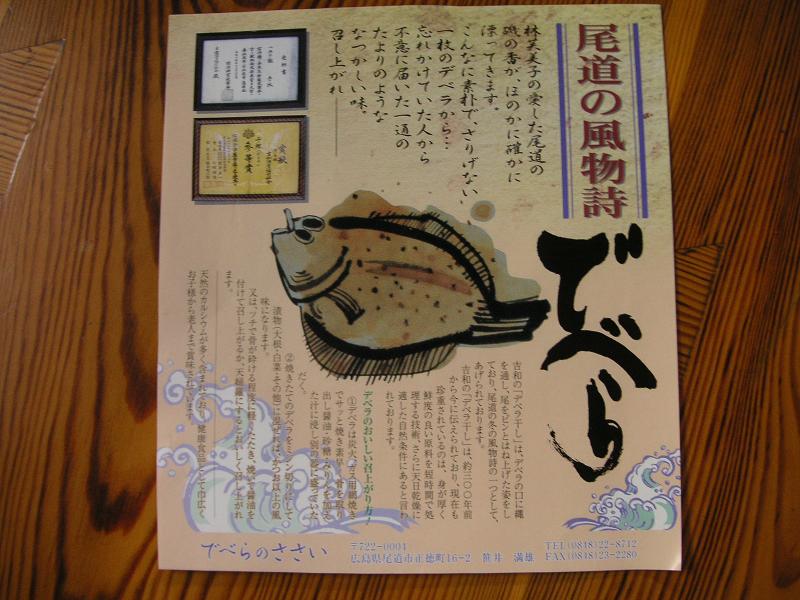 尾道の風物詩
でべら
林芙美子の愛した尾道の
磯の香が、ほのかに確かに
漂ってきます。
こんなに素朴で、さりげない
一枚のデベラから…
忘れかけていた人から
不意に届いた一通の
たよりのような
なつかしい味、
召し上がれ——
賞状
参等賞
吉和の「デベラ干し」は、デベラの口に縄
を通し、尾をピンとはね上げた姿をし
ており、尾道の冬の風物詩の一つとして、
あげられております。
吉和の「デベラ干し」は、約三〇〇年前
から今に伝えられており、現在も
珍重されているのは、身が厚く
鮮度の良い原料を短時間で処
理する技術、さらに天日乾燥に
適した自然条件にあると言わ
れております。
デベラのおいしい召上がり方!
①デベラは炭火、ガス用網焼き
でサッと焼き素早く骨を取り
出し醤油・砂糖・みりんを加え
た汁に浸し別の器に盛っていた
だく。
②焼きたてのデベラをミジン切りにして
漬物(大根・白菜・その他)に混ぜれば、かつお以上の風
味になります。
又は、ツチで骨が砕ける程度に軽くたたき、焼いて醤油を
付けて召し上がるか、天婦羅にするとおいしく召し上がれ
ます。
天然のカルシウムが多く含まれており、健康食品として巾広く
お子様から老人まで賞味されています。
でべらのささい
〒722-0004
広島県尾道市正徳町16-2 笹井 満雄
TEL(0848)22-8712
FAX(0848)23-2280